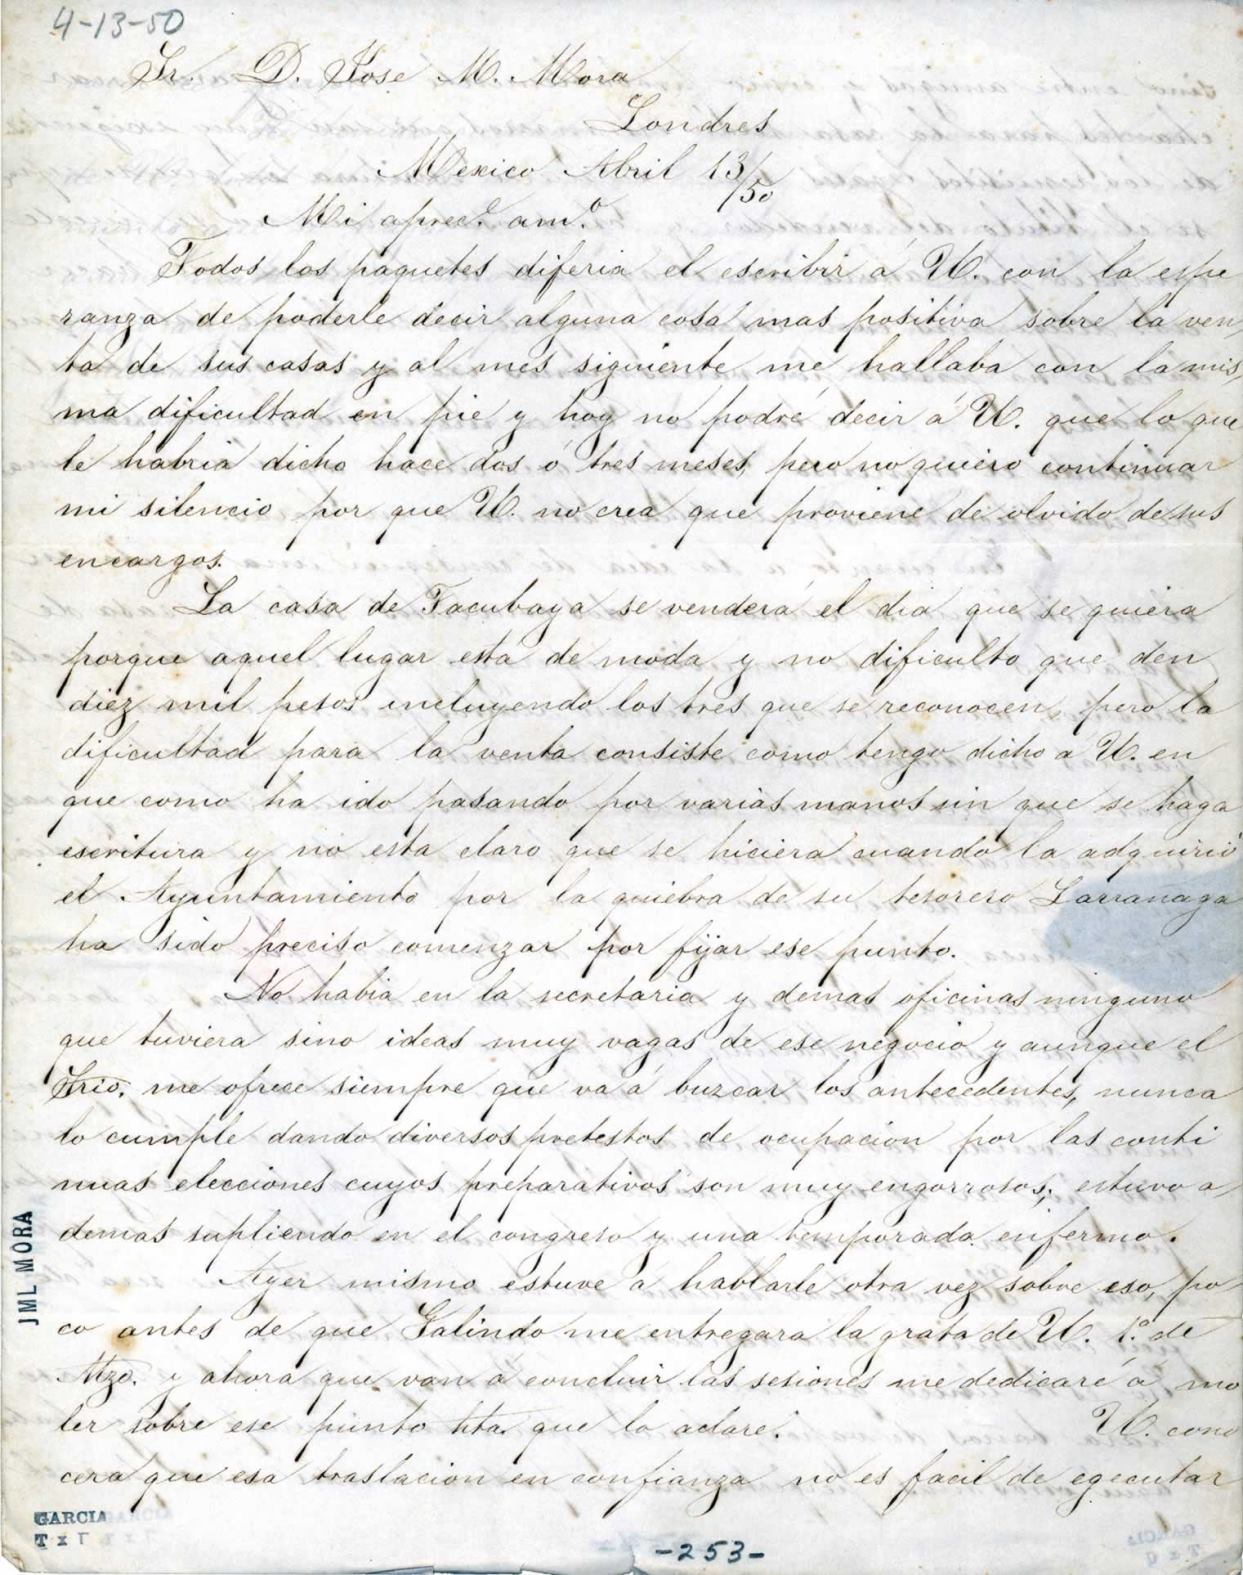 4-13-50
Sr. D. Jose M. Mora
Londres
Mexico Abril 13/50
Mi aprec.e am.o
Todos los paquetes diferia el escribir á U. con la espe
ranza de poderle decir alguna cosa mas positiva sobre la ven,
ta de sus casas y al mes siguiente me hallaba con la mis,
ma dificultad en pie y hoy no podré decir á U. que lo que
le habria dicho hace dos ó tres meses, pero no quiero continuar
mi silencio por que U. no crea que proviene de olvido de sus
encargos.
La casa de Tacubaya se venderá el dia que se quiera
porque aquel lugar esta de moda y no dificulto que den
diez mil pesos incluyendo los tres que se reconocen, pero la
dificultad para la venta consiste como tengo dicho a U. en
que como ha ido pasando por varias manos sin que se haga
escritura y no esta claro que se hiciera cuando la adquirió
el Ayuntamiento por la quiebra de su tesorero Larrañaga
ha sido preciso comenzar por fijar ese punto.
No habia en la secretaria y demas oficinas ninguno
que tuviera sino ideas muy vagas de ese negocio y aunque el
Srio. me ofrece siempre que va á buzcar los antecedentes, nunca
lo cumple dando diversos pretestos de ocupacion por las conti
nuas elecciones cuyos preparativos son muy engorrosos; estuvo a,
demas supliendo en el congreso y una temporada enfermo.
Ayer mismo estuve á hablarle otra vez sobre eso, po
co antes de que Galindo me entregara la grata de U. 1.o de
Mzo. y ahora que van á concluir las sesiones me dedicaré á mo
ler sobre ese punto hta. que lo aclare. U. cono
cera que esa traslacion en confianza no es facil de egecutar
JML MORA
GARCIA
T x T
-253-